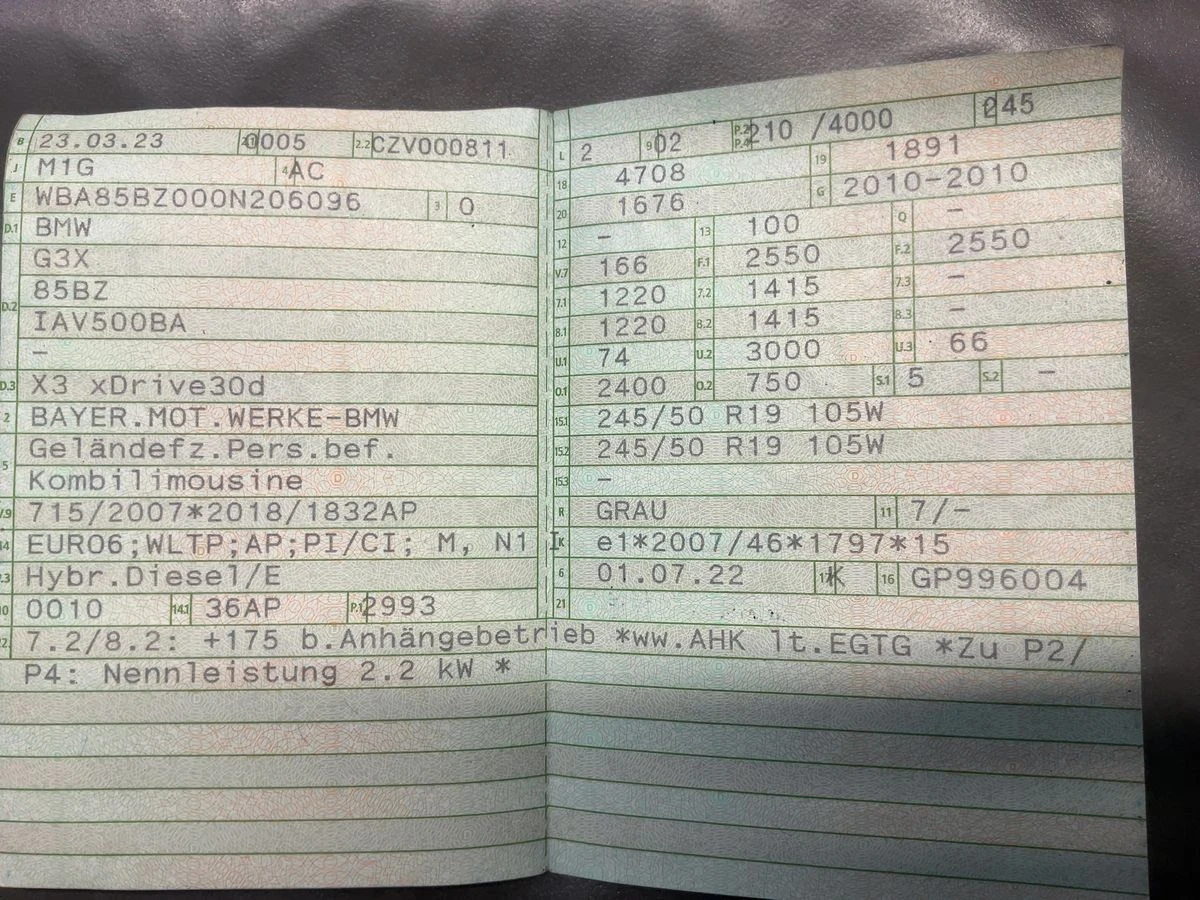 B 23.03.23 2.1 0005 2.2 CZV000811
J M1G 4 AC
E WBA85BZ000N206096 3 0
D.1 BMW
G3X
D.2 85BZ
IAV500BA
–
D.3 X3 xDrive30d
2 BAYER.MOT.WERKE-BMW
5 Geländefz.Pers.bef.
Kombilimousine
V.9 715/2007*2018/1832AP
14 EURO6;WLTP;AP;PI/CI; M, N1 I
P.3 Hybr.Diesel/E
10 0010 14.1 36AP P.1 2993
L 2 9 02 P.2 P.4 210 /4000 245
18 4708 19 1891
20 1676 G 2010-2010
12 – 13 100 Q –
V.7 166 F.1 2550 F.2 2550
7.1 1220 7.2 1415 7.3 –
8.1 1220 8.2 1415 8.3 –
U.1 74 U.2 3000 U.3 66
O.1 2400 O.2 750 S.1 5 S.2 –
15.1 245/50 R19 105W
15.2 245/50 R19 105W
15.3 –
R GRAU 11 7/-
K e1*2007/46*1797*15
6 01.07.22 17 K 16 GP996004
21
22 7.2/8.2: +175 b.Anhängebetrieb *ww.AHK lt.EGTG *Zu P2/
P4: Nennleistung 2.2 kW *